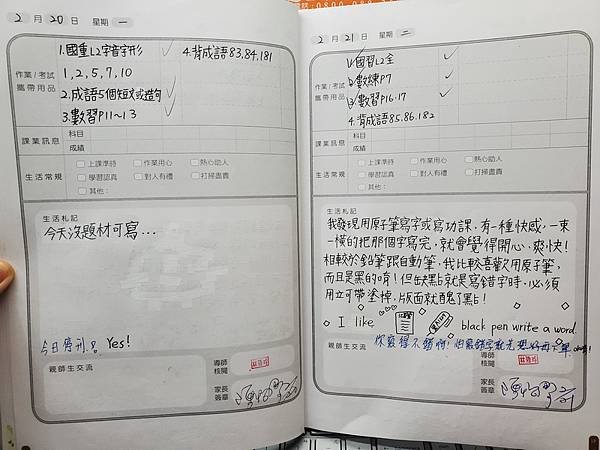 2 月 20 日 星期 一
作業/考試
攜帶用品
1.國重L2字音字形
1,2,5,7,10
2.成語5個短文或造句
3.數習P11~13
4.背成語83,84,181
課業訊息
科目
成績
生活常規
上課準時
作業用心
熱心助人
學習認真
對人有禮
打掃盡責
其他:
生活札記
今天沒題材可寫...
今日停刊 Yes!
親師生交流
導師核閱
家長簽章
2 月 21 日 星期 二
作業/考試
攜帶用品
1.國習L2全
2.數練P7
3.數習P16.17
4.背成語85.86.182
課業訊息
科目
成績
生活常規
上課準時
作業用心
熱心助人
學習認真
對人有禮
打掃盡責
其他:
生活札記
我發現用原子筆寫字或寫功課,有一種快感,一東
一橫的把那個字寫完,就會覺得開心、爽快!
相較於鉛筆跟自動筆,我比較喜歡用原子筆,
而且是黑的唷!但缺點就是寫錯字時,必須
用立可帶塗掉,版面就醜了點!
I like black pen write a word.
親師生交流
導師核閱
家長簽章